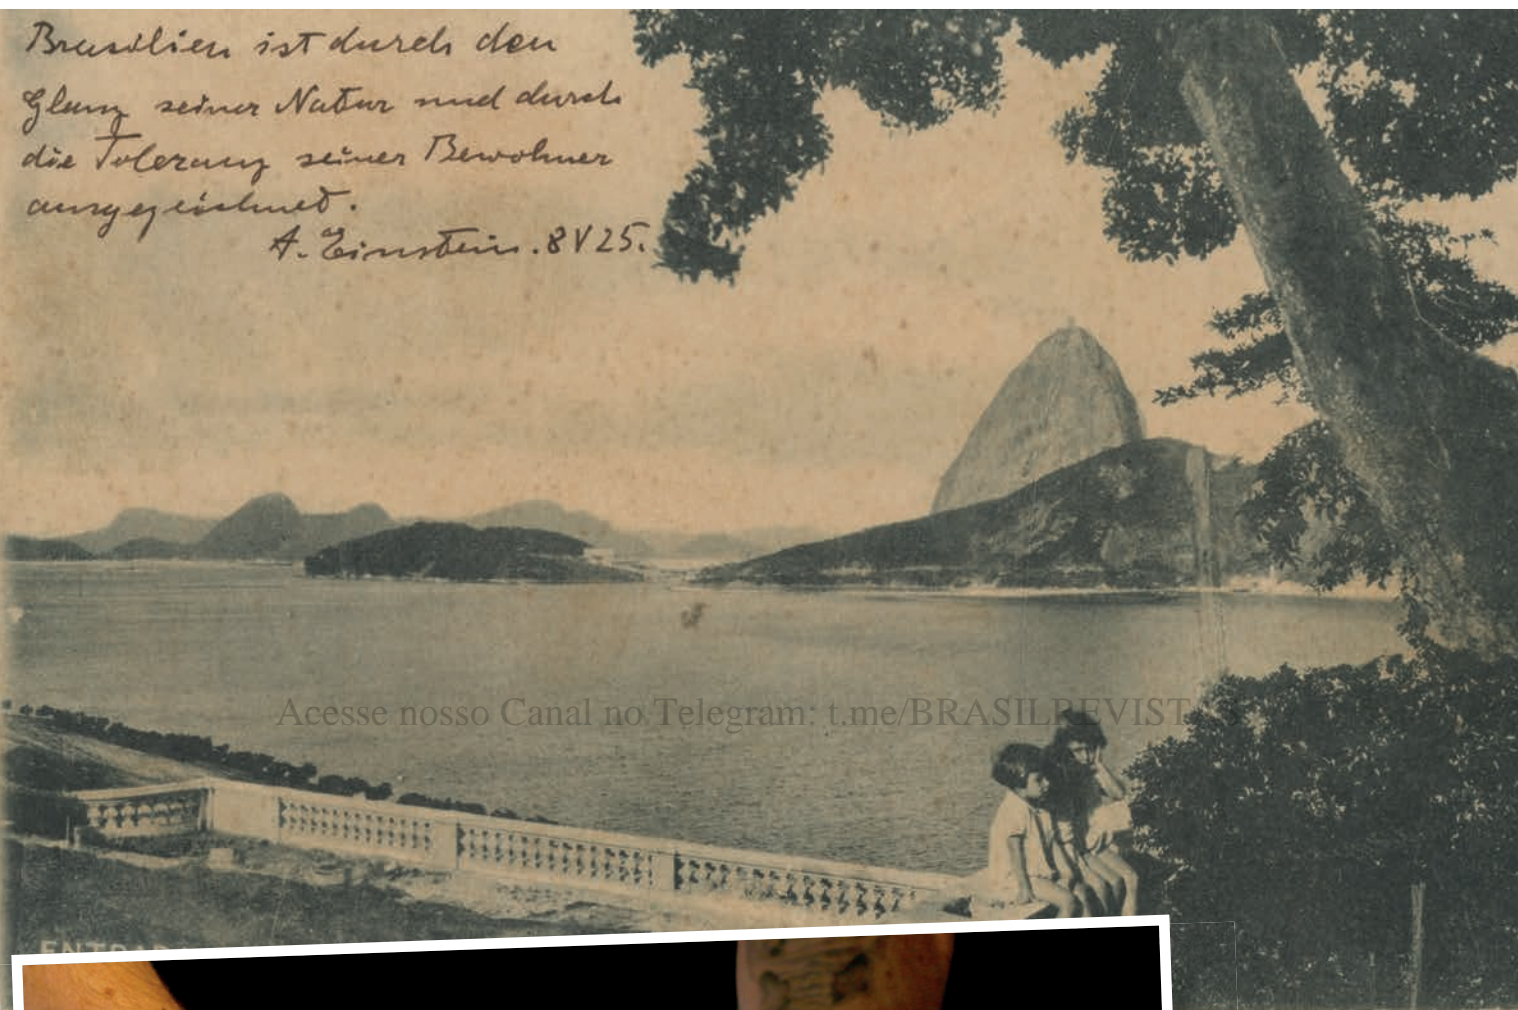 Brasilien ist durch den
Glanz seiner Natur und durch
die Toleranz seiner Bewohner
ausgezeichnet.
A. Einstein. 8 V 25.
Acesse nosso Canal no Telegram: t.me/BRASILREVISTAS